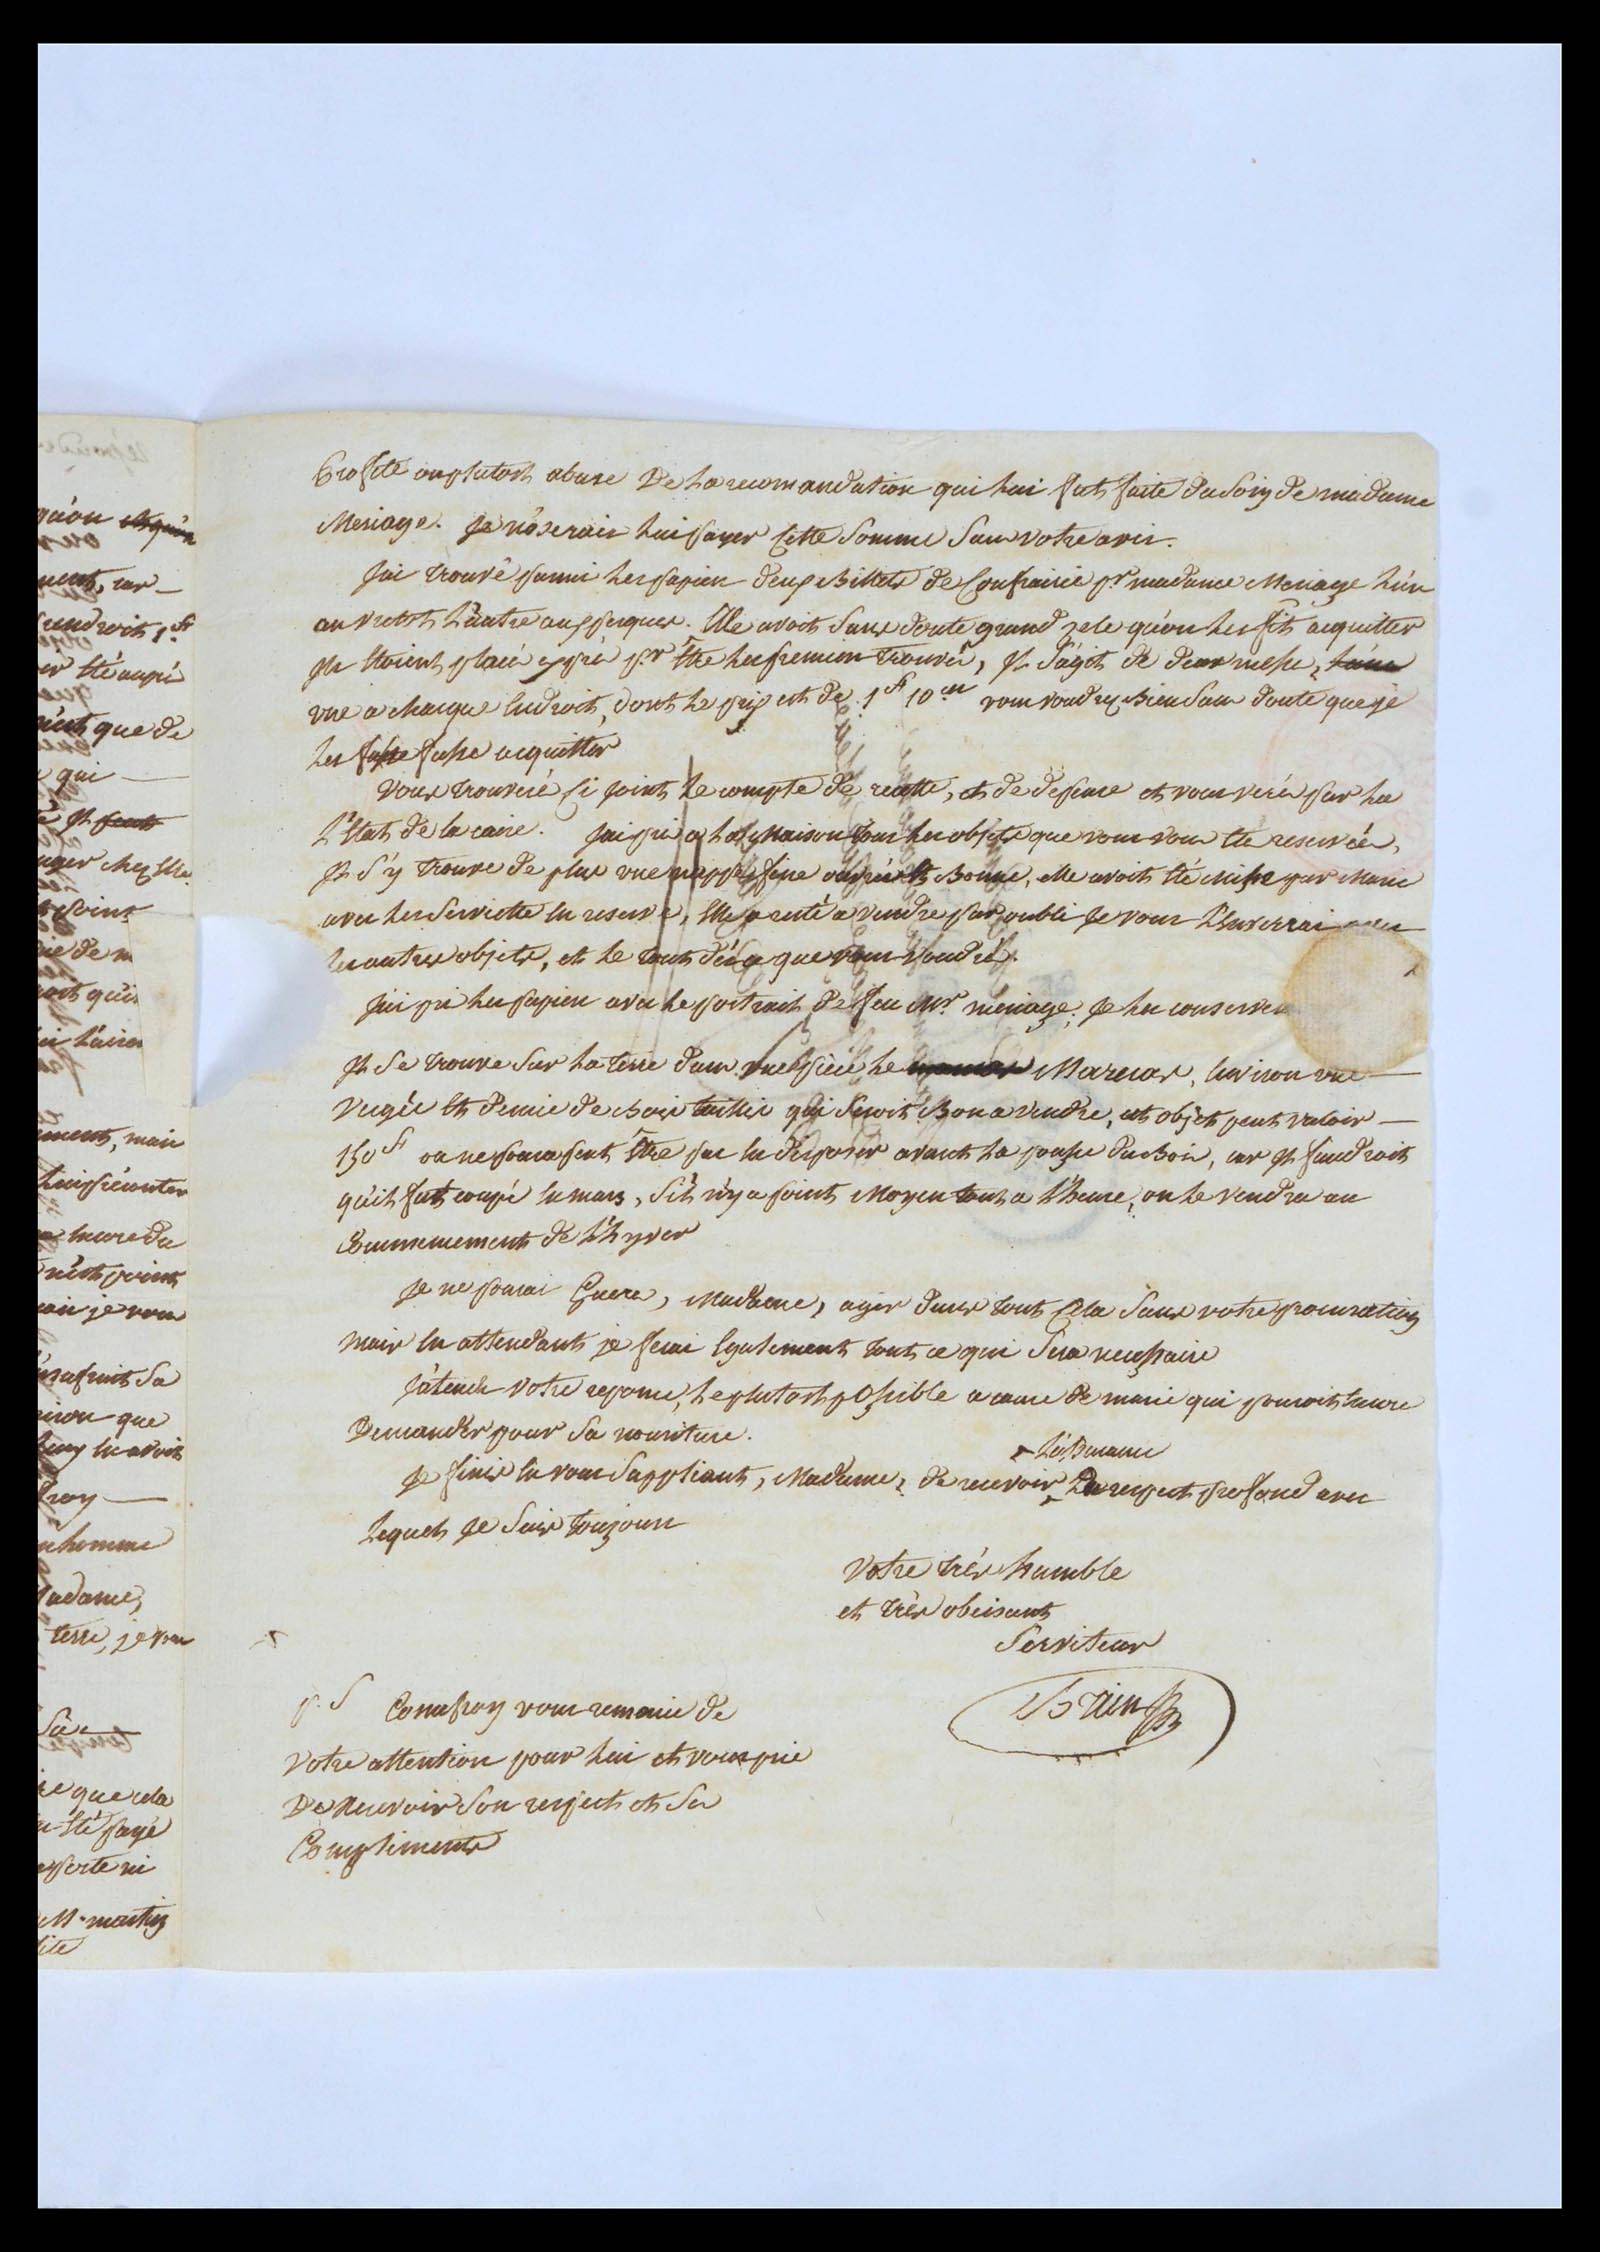 profité ou plutost abuse De la recomandation qui lui fut faite du soin de madame
Meriage. je n'oserais lui payer cette somme sans votre avis.
J'ai trouvé parmi les papiers deux Billets de Confrairie pr madame Meriage l'un
au vietot l'autre aux perques. Elle avoit sans doute grand zele qu'on les fit acquitter
ils etoient placé expré pr être les premiers trouvés, il s'agit de deux messe, l'une
une a chaque Endroit, dont le prix est de 1 fr 10 cen vous voudrez Bien sans doute que je
les fasse fasse acquitter
Vous trouveré Ci joint le compte de recette, et de depense et vous verés par la
L'Etat de la caisse. J'ai pri a la Maison tous les objets que vous vous ete reservées,
il s'y trouve de plus une nappe fine ouvrée et Bonne, elle avoit été mise par Marie
avec les serviette en reserve, Elle a resté a vendre par oubli je vous L'enverrai avec
les autres objets, et le tout dé ce que vous voudré.
J'ai pri les papiers avec le portrait de feu Mr meriage. je les conserver
il se trouve sur la terre dans une pièce le Marcar, Environ une
vergée et demie de Bois taillis qui seroit Bon a vendre, cet objet peut valoir
150 fr on ne poura peut être pas en disposer avant la pousse du Bois, car il faudroit
qu'il fut coupé en mars, s'il n'y a point Moyen tout a l'heure, on le vendra au
Commencement de L'hyver
Je ne pourai Guere, Madame, agir dans tout Cela sans votre procuration
mais en attendant je ferai Egalement tout ce qui sera necessaire
J'atends votre reponse, le plutost possible a cause de marie qui pouroit encore
Demander pour sa nouriture.
L'homage
Je finis en vous suppliant, Madame, de recevoir Du respect profond avec
lequel Je suis toujours
Votre très humble
et très obeisant
Serviteur
Brain
p. S Comfroy vous remercie de
votre attention pour lui et vous prie
De recevoir son respect et ses
Compliments
qu'on
ment, car
faudroit 1 fr
que de
qui
il
point
ment, mais
n'est point
mais je vous
sa
que
homme
Madame,
terre, je vous
que cela
été payé
martin